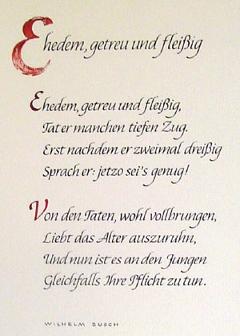 Ehedem, getreu und fleißig
Ehedem, getreu und fleißig,
Tat er manchen tiefen Zug.
Erst nachdem er zweimal dreißig
Sprach er: jetzo sei's genug!
Von den Taten, wohl vollbrungen,
Liebt das Alter auszuruhn,
Und nun ist es an den Jungen
Gleichfalls Ihre Pflicht zu tun.
WILHELM BUSCH